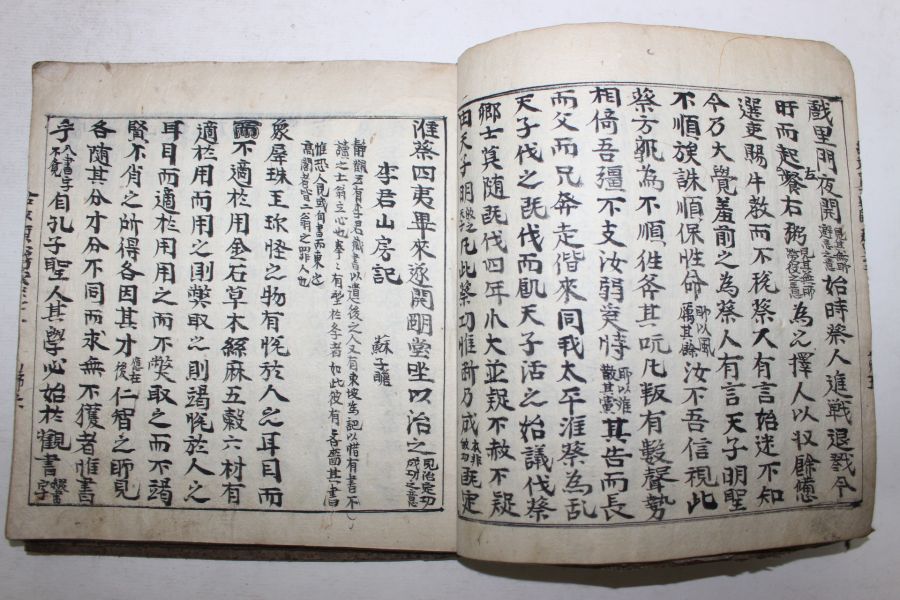 戲里門夜開始時蔡人進戰退戮今
旰而起左飧右粥為之擇人以收餘憊
選吏賜牛教而不稅蔡人有言始迷不知
今乃大覺羞前之為蔡人有言天子明聖
不順族誅順保性命汝不吾信視此
蔡方孰為不順往斧其吭凡叛有數聲勢
相倚吾彊不支汝弱奚恃其告而長
而父而兄奔走偕來同我太平淮蔡為亂
天子伐之旣伐而飢天子活之始議伐蔡
卿士莫隨旣伐四年小大並疑不赦不疑
由天子明凡此蔡功惟斷乃成旣定
淮蔡四夷畢來遂開明堂坐以治之見治定功成功之意
李君山房記 蘇子瞻
靜觀
李君藏書以遺後之人又有東坡為記以惜有書不
讀之士
象犀珠玉珍怪之物有悅於人之耳目而
不適於用金石草木絲麻五穀六材有
適於用而用之則弊取之則竭悅於人之
耳目而適於用用之而不弊取之而不竭
賢不肖之所得各因其才仁智之所見
各随其分才分不同而求無不獲者惟書
乎自孔子聖人其學必始於觀書